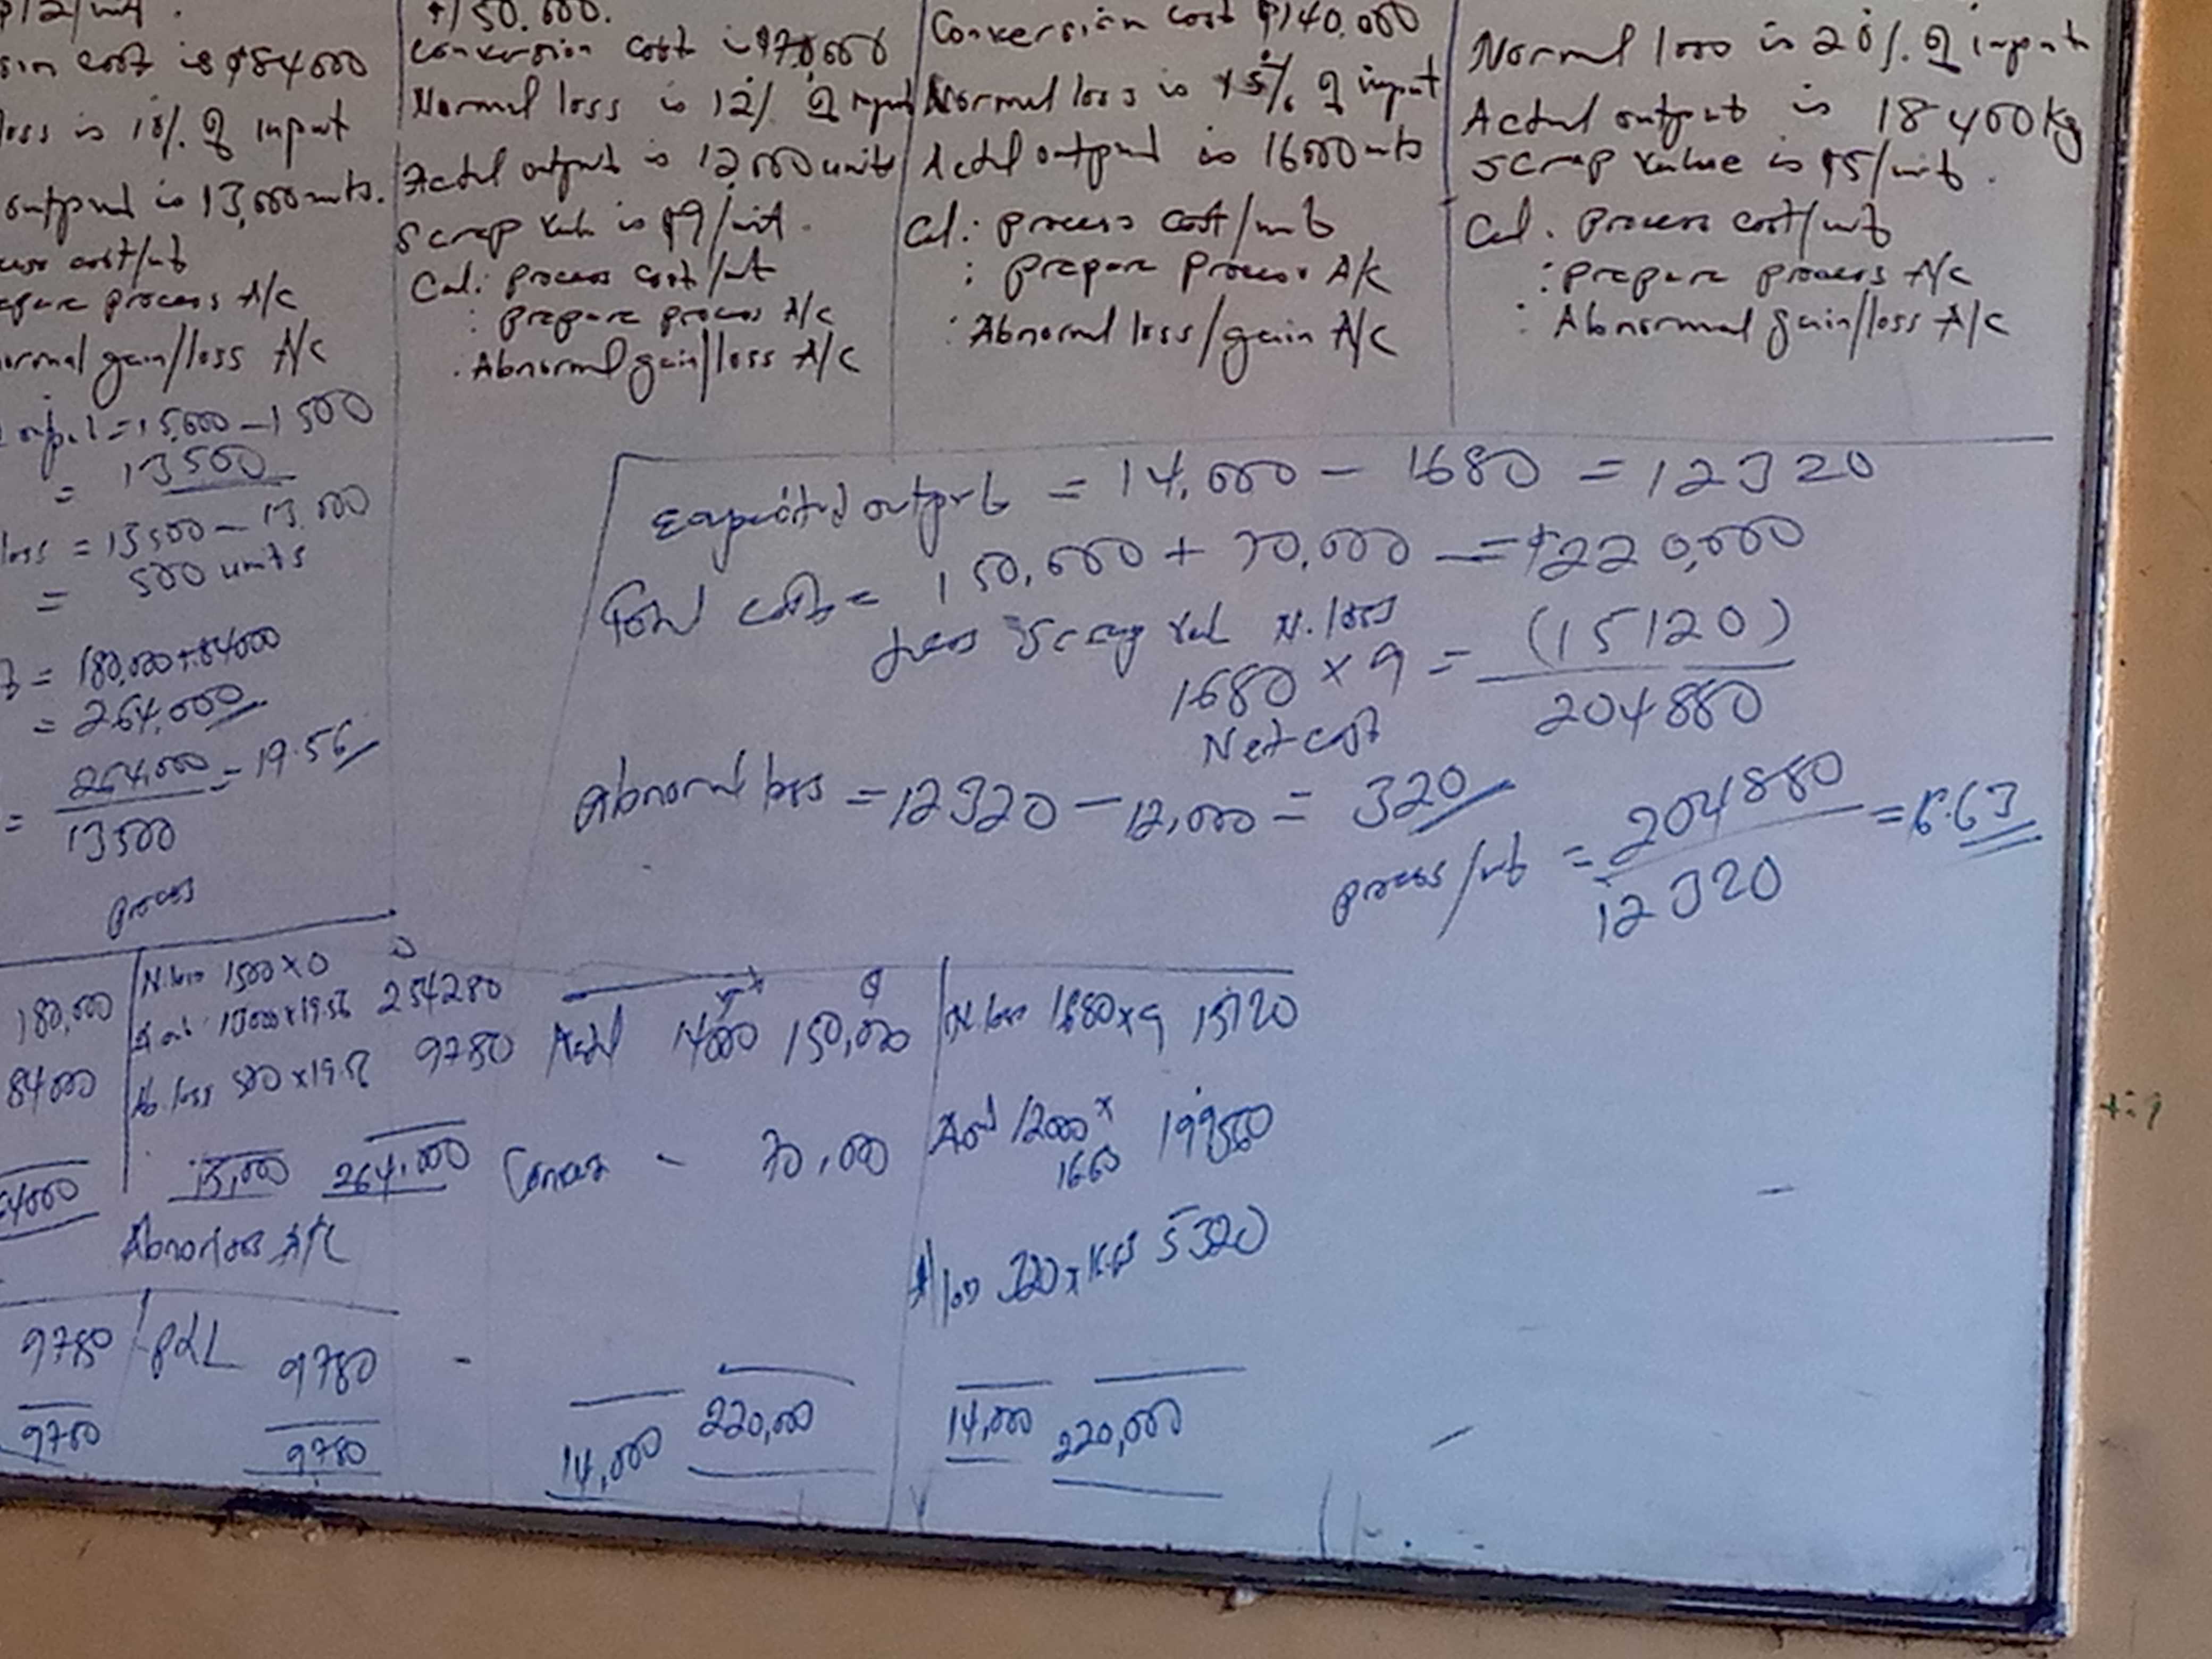 $150,000.
Conversion cost $140,000
sion cost is $84000
Conversion cost is $70,000
Normal loss is 20% of input
loss is 10% of input
Normal loss is 12% of input
Normal loss is 15% of input
Actual output is 18400kg
output is 13,000 units.
Actual output is 12,000 units
Actual output is 16000 units
Scrap value is $5/unit.
cost/unit
Scrap value is $9/unit.
Cal: process cost/unit
Cal. process cost/unit
epare process A/C
Cal: process cost/unit
: prepare process A/C
: prepare process A/C
normal gain/loss A/C
: prepare process A/C
: Abnormal loss/gain A/C
: Abnormal gain/loss A/C
. Abnormal gain/loss A/C
= 15,000 - 1500
= 13500
Expected output = 14,000 - 1680 = 12320
loss = 13500 - 13,000
= 500 units
Total cost = 150,000 + 70,000 = $220,000
Less Scrap Val N. loss
1680 x 9 = (15120)
= 180,000 + 84000
= 264,000
Net cost 204880
= 264,000 = 19.56
13500
Abnormal loss = 12320 - 12,000 = 320
process/unit = 204880 = 16.63
12320
process
180,000 N. loss 1500 x 0
13000 x 19.56 254280
84000 Ab. loss 500 x 19.56 9780
15,000 264,000
14000 150,000 N. loss 1680 x 9 15120
70,000 12000 x 199560
320 x 5320
Abnor loss A/C
9780 P&L 9780
9780 9780
14,000 220,000 14,000 220,000